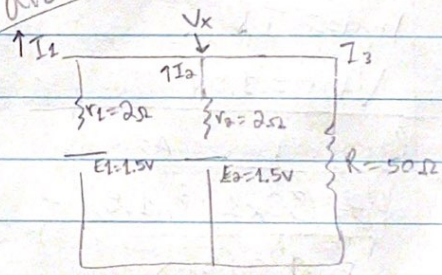 Vx
↑I1
↑I2
I3
r1=2Ω
r2=2Ω
E1=1.5V
E2=1.5V
R=50Ω